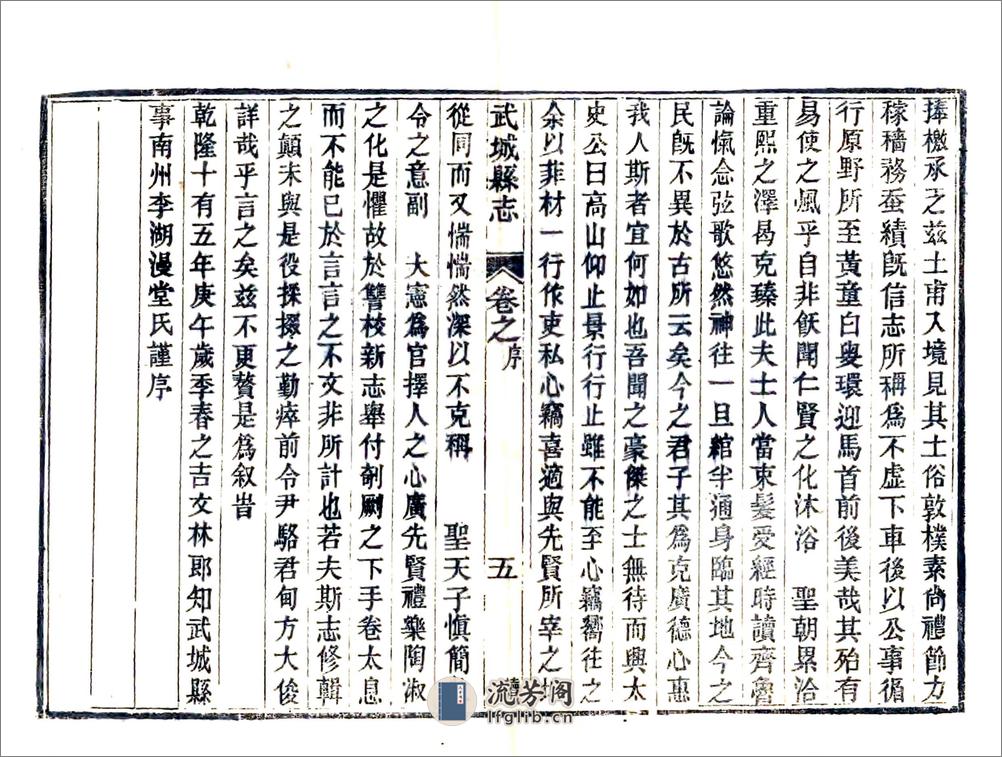 捧檄承之兹土甫入境見其土俗敦樸素尚禮節力
稼穡務蚕績旣信志所稱爲不虚下車後以公事循
行原野所至黃童白叟環迎馬首前後美哉其殆有
易使之風乎自非飫聞仁賢之化沐浴 聖朝累洽
重熙之澤曷克臻此夫士人當束髮受經時讀齊魯
論慨念弦歌悠然神往一旦綰半通身臨其地今之
民旣不異於古所云矣今之君子其爲克廣德心惠
我人斯者宜何如也吾聞之豪傑之士無待而興太
史公曰高山仰止景行行止雖不能至心竊嚮往之
余以菲材一行作吏私心竊喜適與先賢所宰之地
武城縣志 卷之 序 五
從同而又惴惴然深以不克稱 聖天子慎簡
令之意副 大憲爲官擇人之心廣先賢禮樂陶淑
之化是懼故於讐校新志舉付剞劂之下手卷太息
而不能已於言言之不文非所計也若夫斯志修輯
之顛末與是役採掇之勤瘁前令尹駱君甸方大俊
詳哉乎言之矣兹不更贅是爲叙旹
乾隆十有五年庚午歲季春之吉文林郎知武城縣
事南州李湖漫堂氏謹序
流芳閣
lfglib.cn